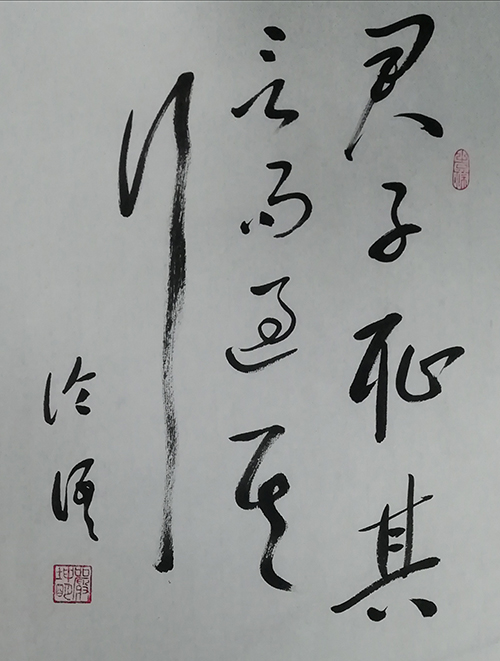 君子耻其
言而过其
行
论语